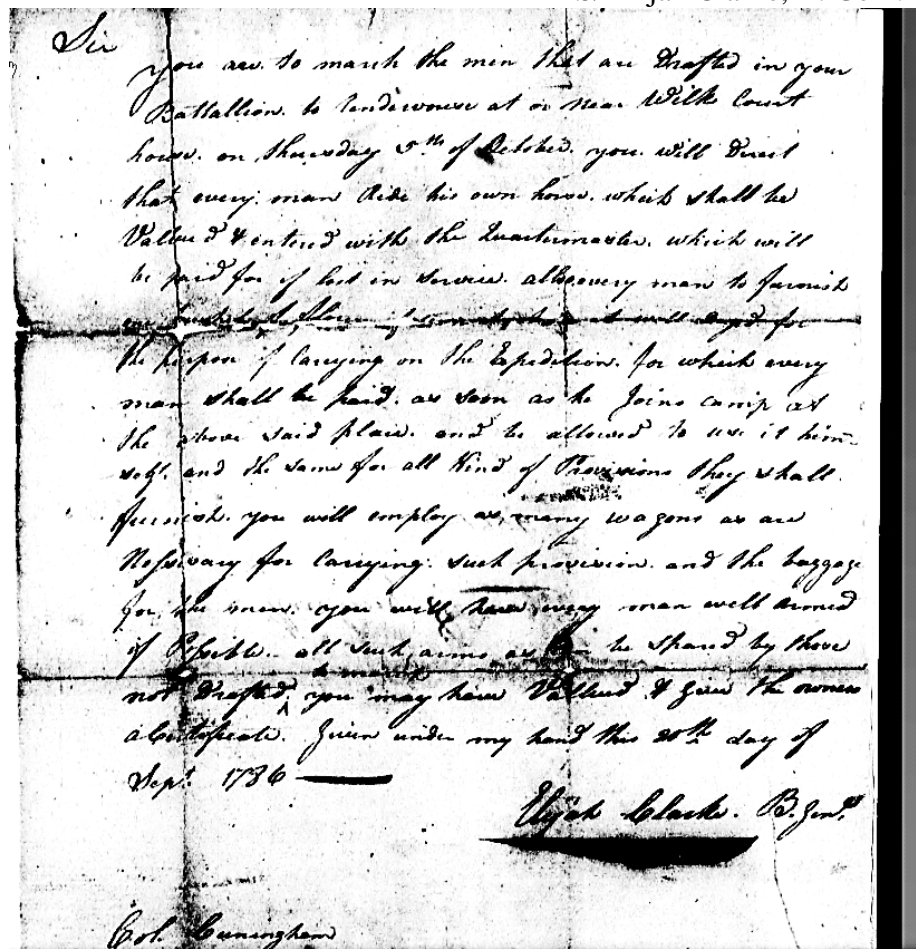 Sir
you are to march the men that are Drafted in your
Battallion. to rendevouse at or near Wilk Court
house. on thursday 5th of October. you will Direct
that every man Ride his own horse. which shall be
Vallued & entred with the Quartermaster. which will
be paid for if lost in service. also every man to furnish
for
the purpon of Carrying on the Expidition. for which every
man shall be paid. as soon as he Joins camp at
the above said place. and be allowed to use it him-
self. and the same for all Kind of Provisions they shall
furnish. you will employ as many wagons as are
Nessisary for Carrying such provision. and the baggage
for the men. you will have every man well armed
if Possible. all such arms as can be spared by those
to march
not Drafted you may have Vallued & give the owners
a Certificate. Given under my hand this 20th day of
Sept. 1786
Elijah Clarke. B. Genl
Col. Cuningham